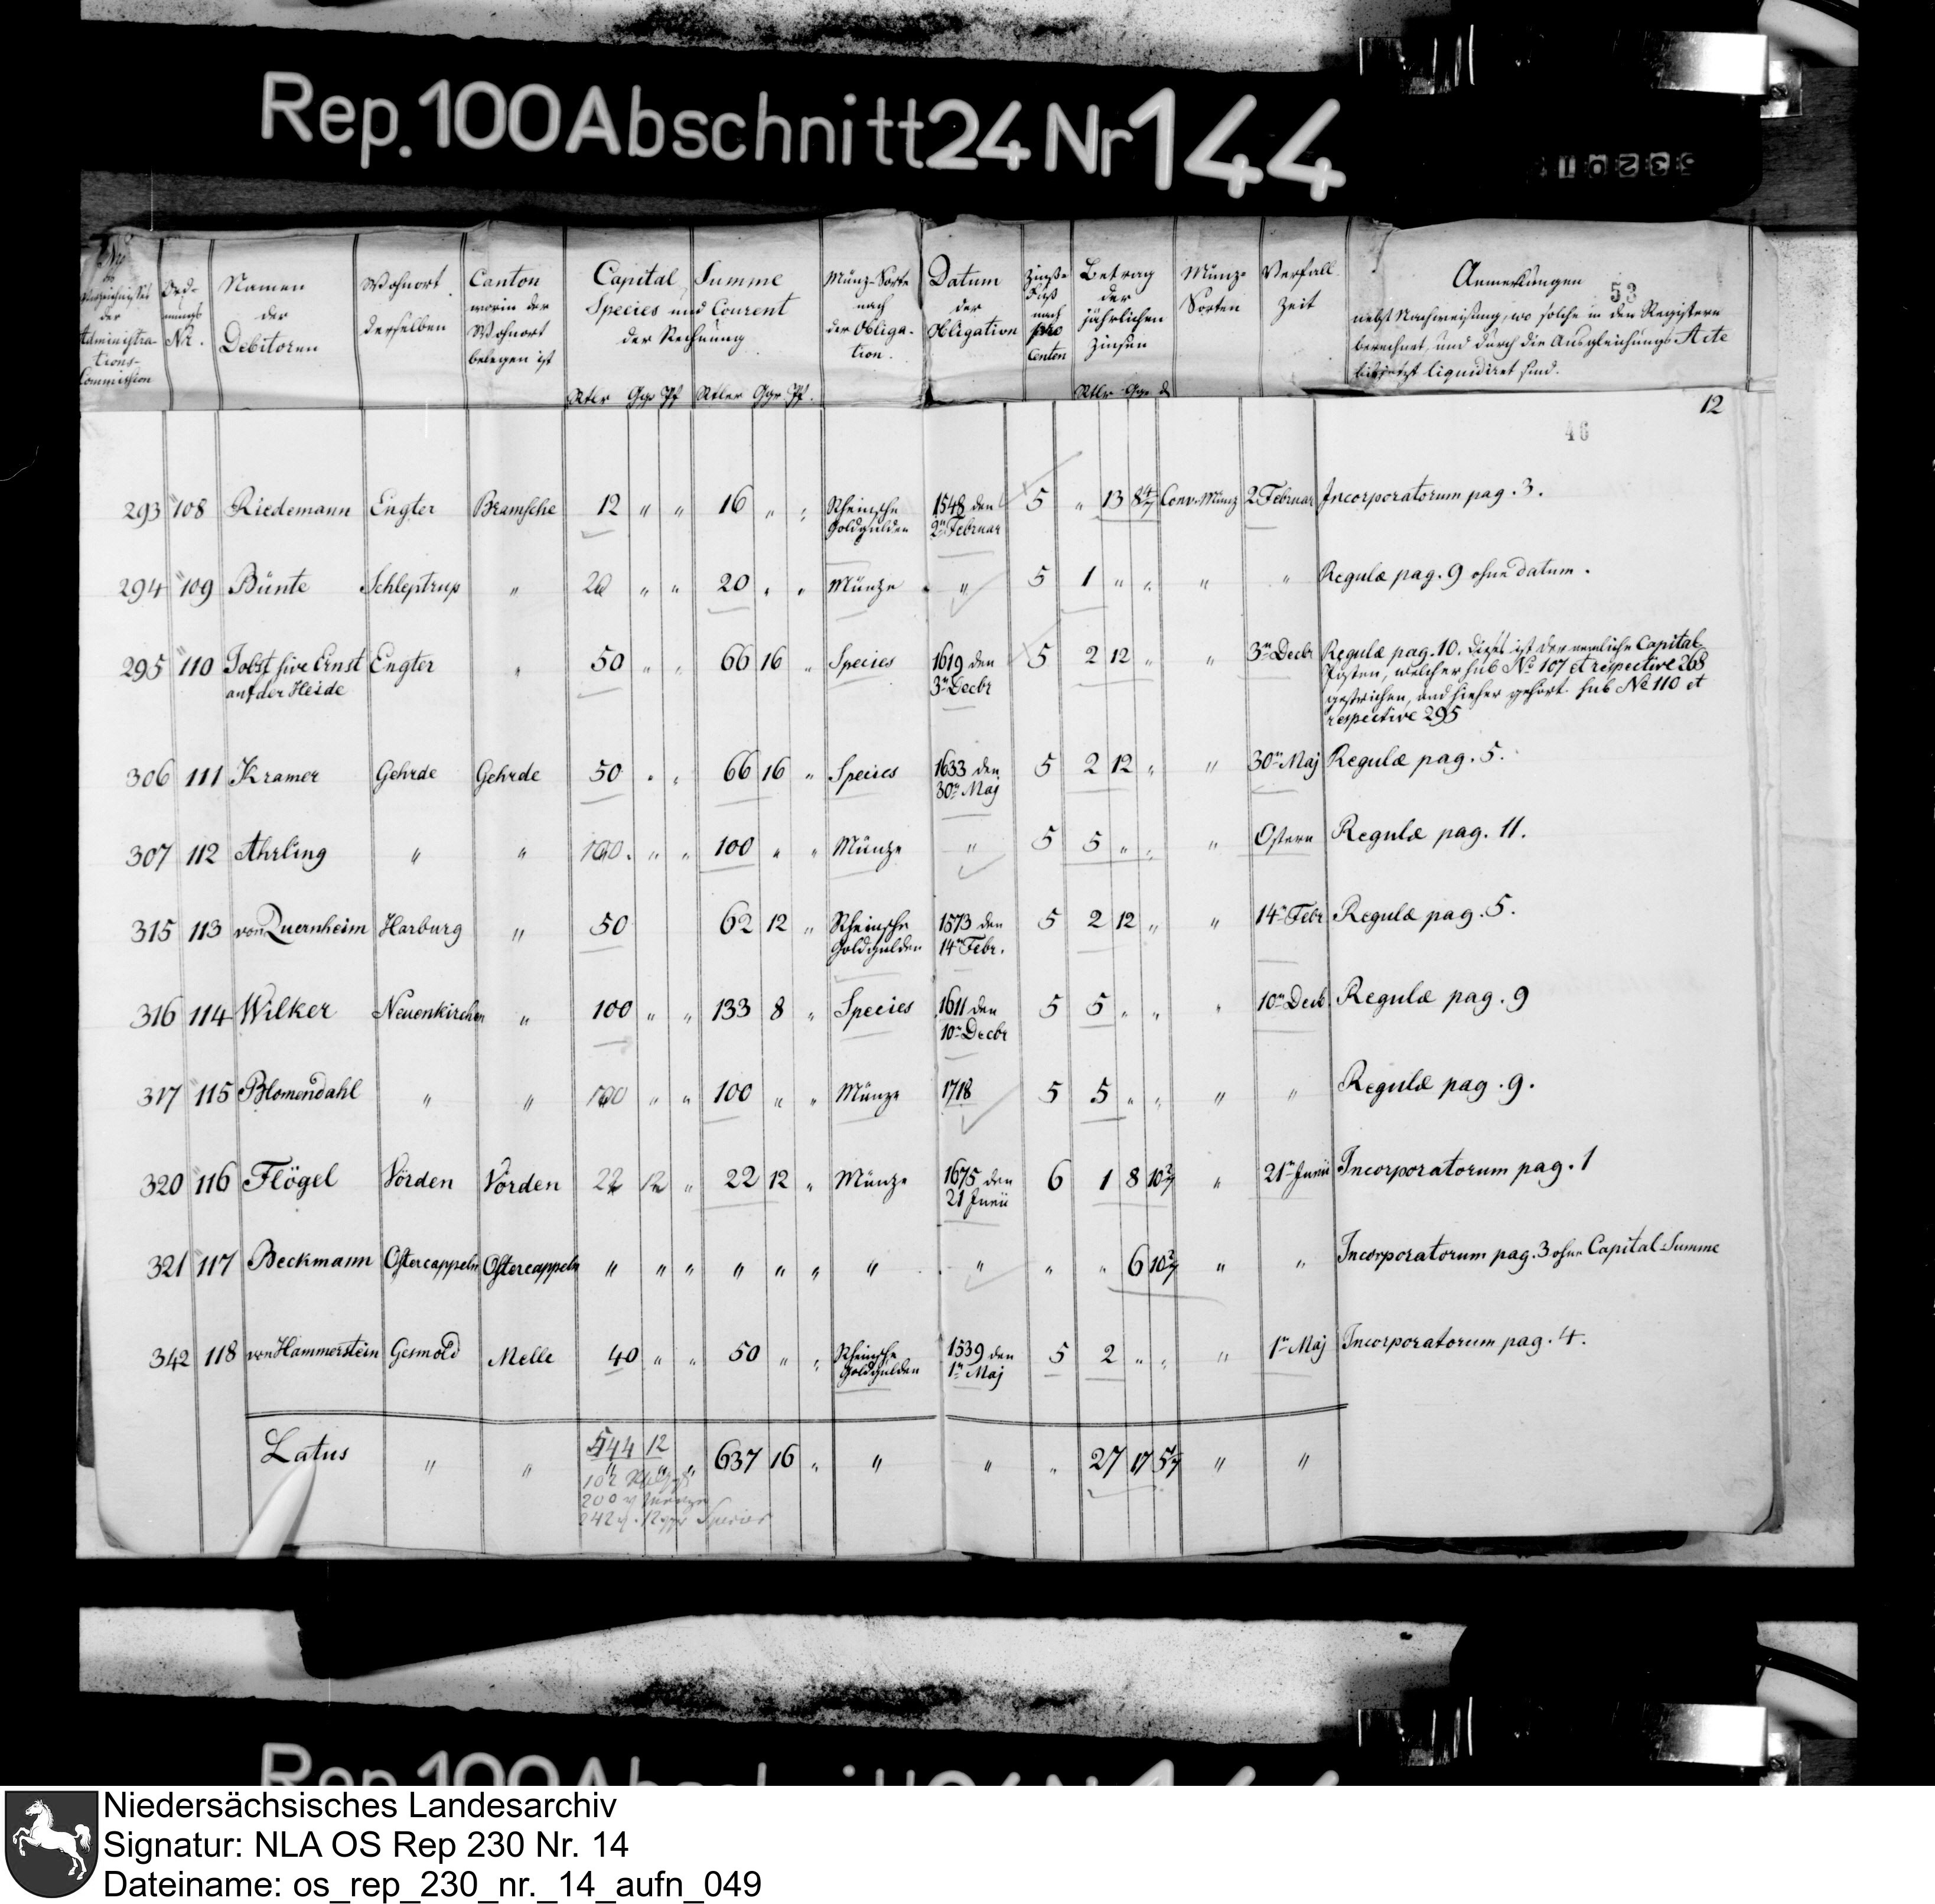 Rep. 100 Abschnitt 24 Nr 144
53201
No in Verzeichnißes der Administrations-Commission | Ord-nungs Nr. | Namen der Debitoren | Wohnort derselben | Canton worin der Wohnort belegen ist | Capital Summe Species und Courent der Rechnung | Münz-Sorte nach der Obligation. | Datum der Obligation | Zinße Fuß nach pro Centen | Betrag der jährlichen Zinsen | Münz-Sorten | Verfall Zeit | Anmerkungen nebst Nachweisung, wo solche in den Registern berechnet, und durch die Ausgleichungs Acte liquidiret sind.
53
Rtlr Ggr Pf Rtler Ggr Pf. Rtlr Ggr
12
46
293 108 Riedemann Engter Bramsche 12 " " 16 " " Rheinsche Goldgulden 1548 den 2n Februar 5 " 13 8 4/7 Conv. Münz 2 Februar Incorporatorum pag. 3.
294 109 Bünte Schleptrup " 20 " " 20 " " Münze " 5 1 " " " " Regulæ pag. 9 ohne Datum.
295 110 Jobst sive Ernst auf der Heide Engter " 50 " " 66 16 " Species 1619 den 3n Decbr 5 2 12 " " 3n Decbr Regulæ pag. 10. Dieses ist der nemliche Capital-
Posten, welcher sub No 107 et respective 268
gestrichen, und hieher gehört sub No 110 et
respective 295
306 111 Kramer Gehrde Gehrde 50 " " 66 16 " Species 1633 den 30n Maj 5 2 12 " " 30n Maj Regulæ pag. 5.
307 112 Ahrling " " 100 " " 100 " " Münze " 5 5 " " " Ostern Regulæ pag. 11.
315 113 von Quernheim Harburg " 50 62 12 " Rheinsche Goldgulden 1573 den 14n Febr. 5 2 12 " " 14n Febr Regulæ pag. 5.
316 114 Wilker Neuenkirchen " 100 " " 133 8 " Species 1611 den 10n Decbr 5 5 " " " 10n Decb. Regulæ pag. 9
317 115 Blomendahl " " 100 " " 100 " " Münze 1718 5 5 " " " " Regulæ pag. 9.
320 116 Flögel Vörden Vörden 22 12 " 22 12 " Münze 1675 den 21 Junii 6 1 8 10 2/7 " 21n Junii Incorporatorum pag. 1
321 117 Beckmann Ostercappeln Ostercappeln " " " " " " " " " " 6 10 2/7 " " Incorporatorum pag. 3 ohne Capital-Summe
342 118 von Hammerstein Gesmold Melle 40 " " 50 " " Rheinsche Goldgulden 1539 den 1n Maj 5 2 " " " 1n Maj Incorporatorum pag. 4.
Latus " " 544 12 " 637 16 " " " " 27 17 " "
102
200
242 12 ggr Species
Niedersächsisches Landesarchiv
Signatur: NLA OS Rep 230 Nr. 14
Dateiname: os_rep_230_nr._14_aufn_049